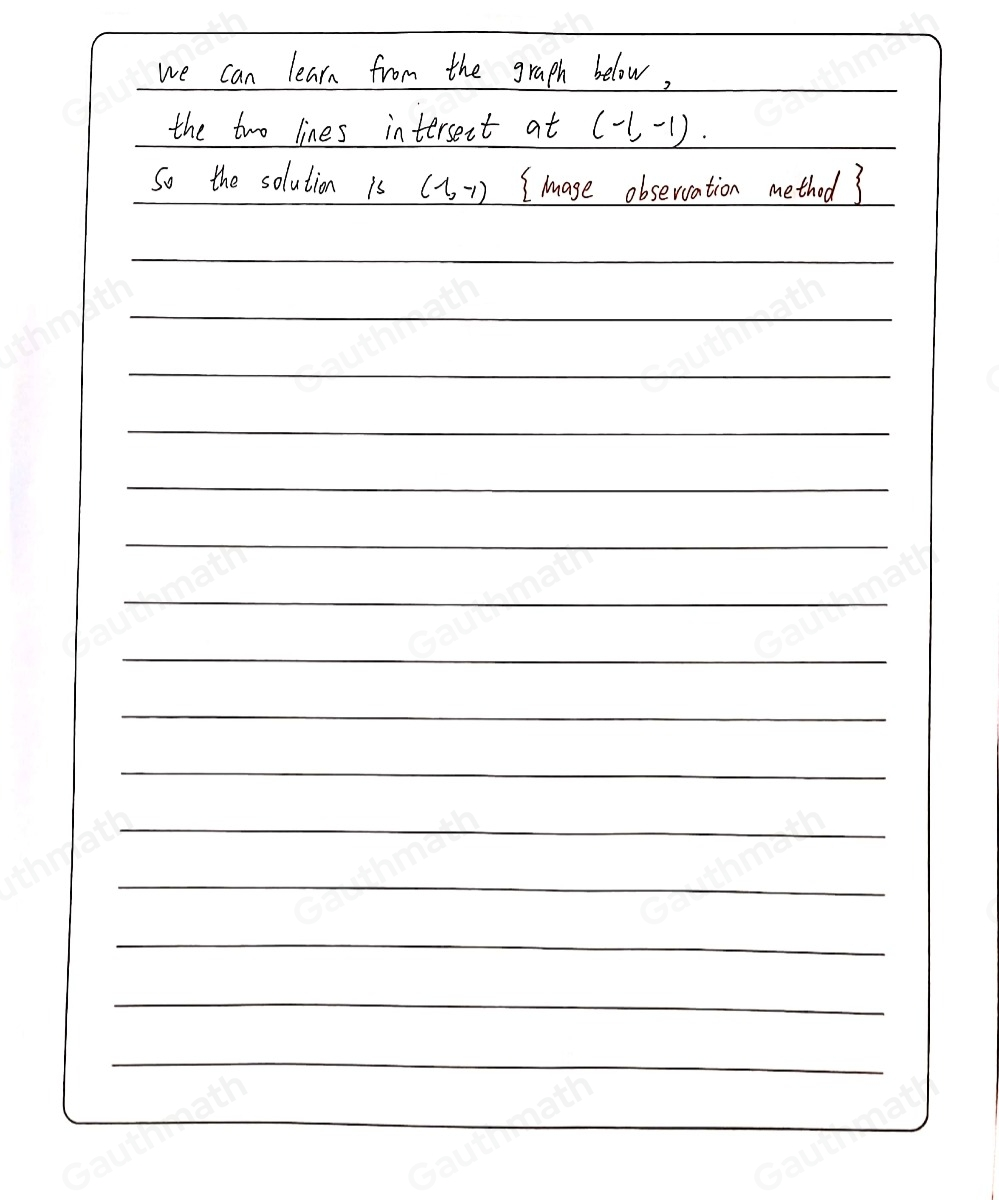 we can learn from the graph below,
the two lines intersect at (-1, -1).
So the solution is (-1, -1) { Image observation method }
Gauthmath